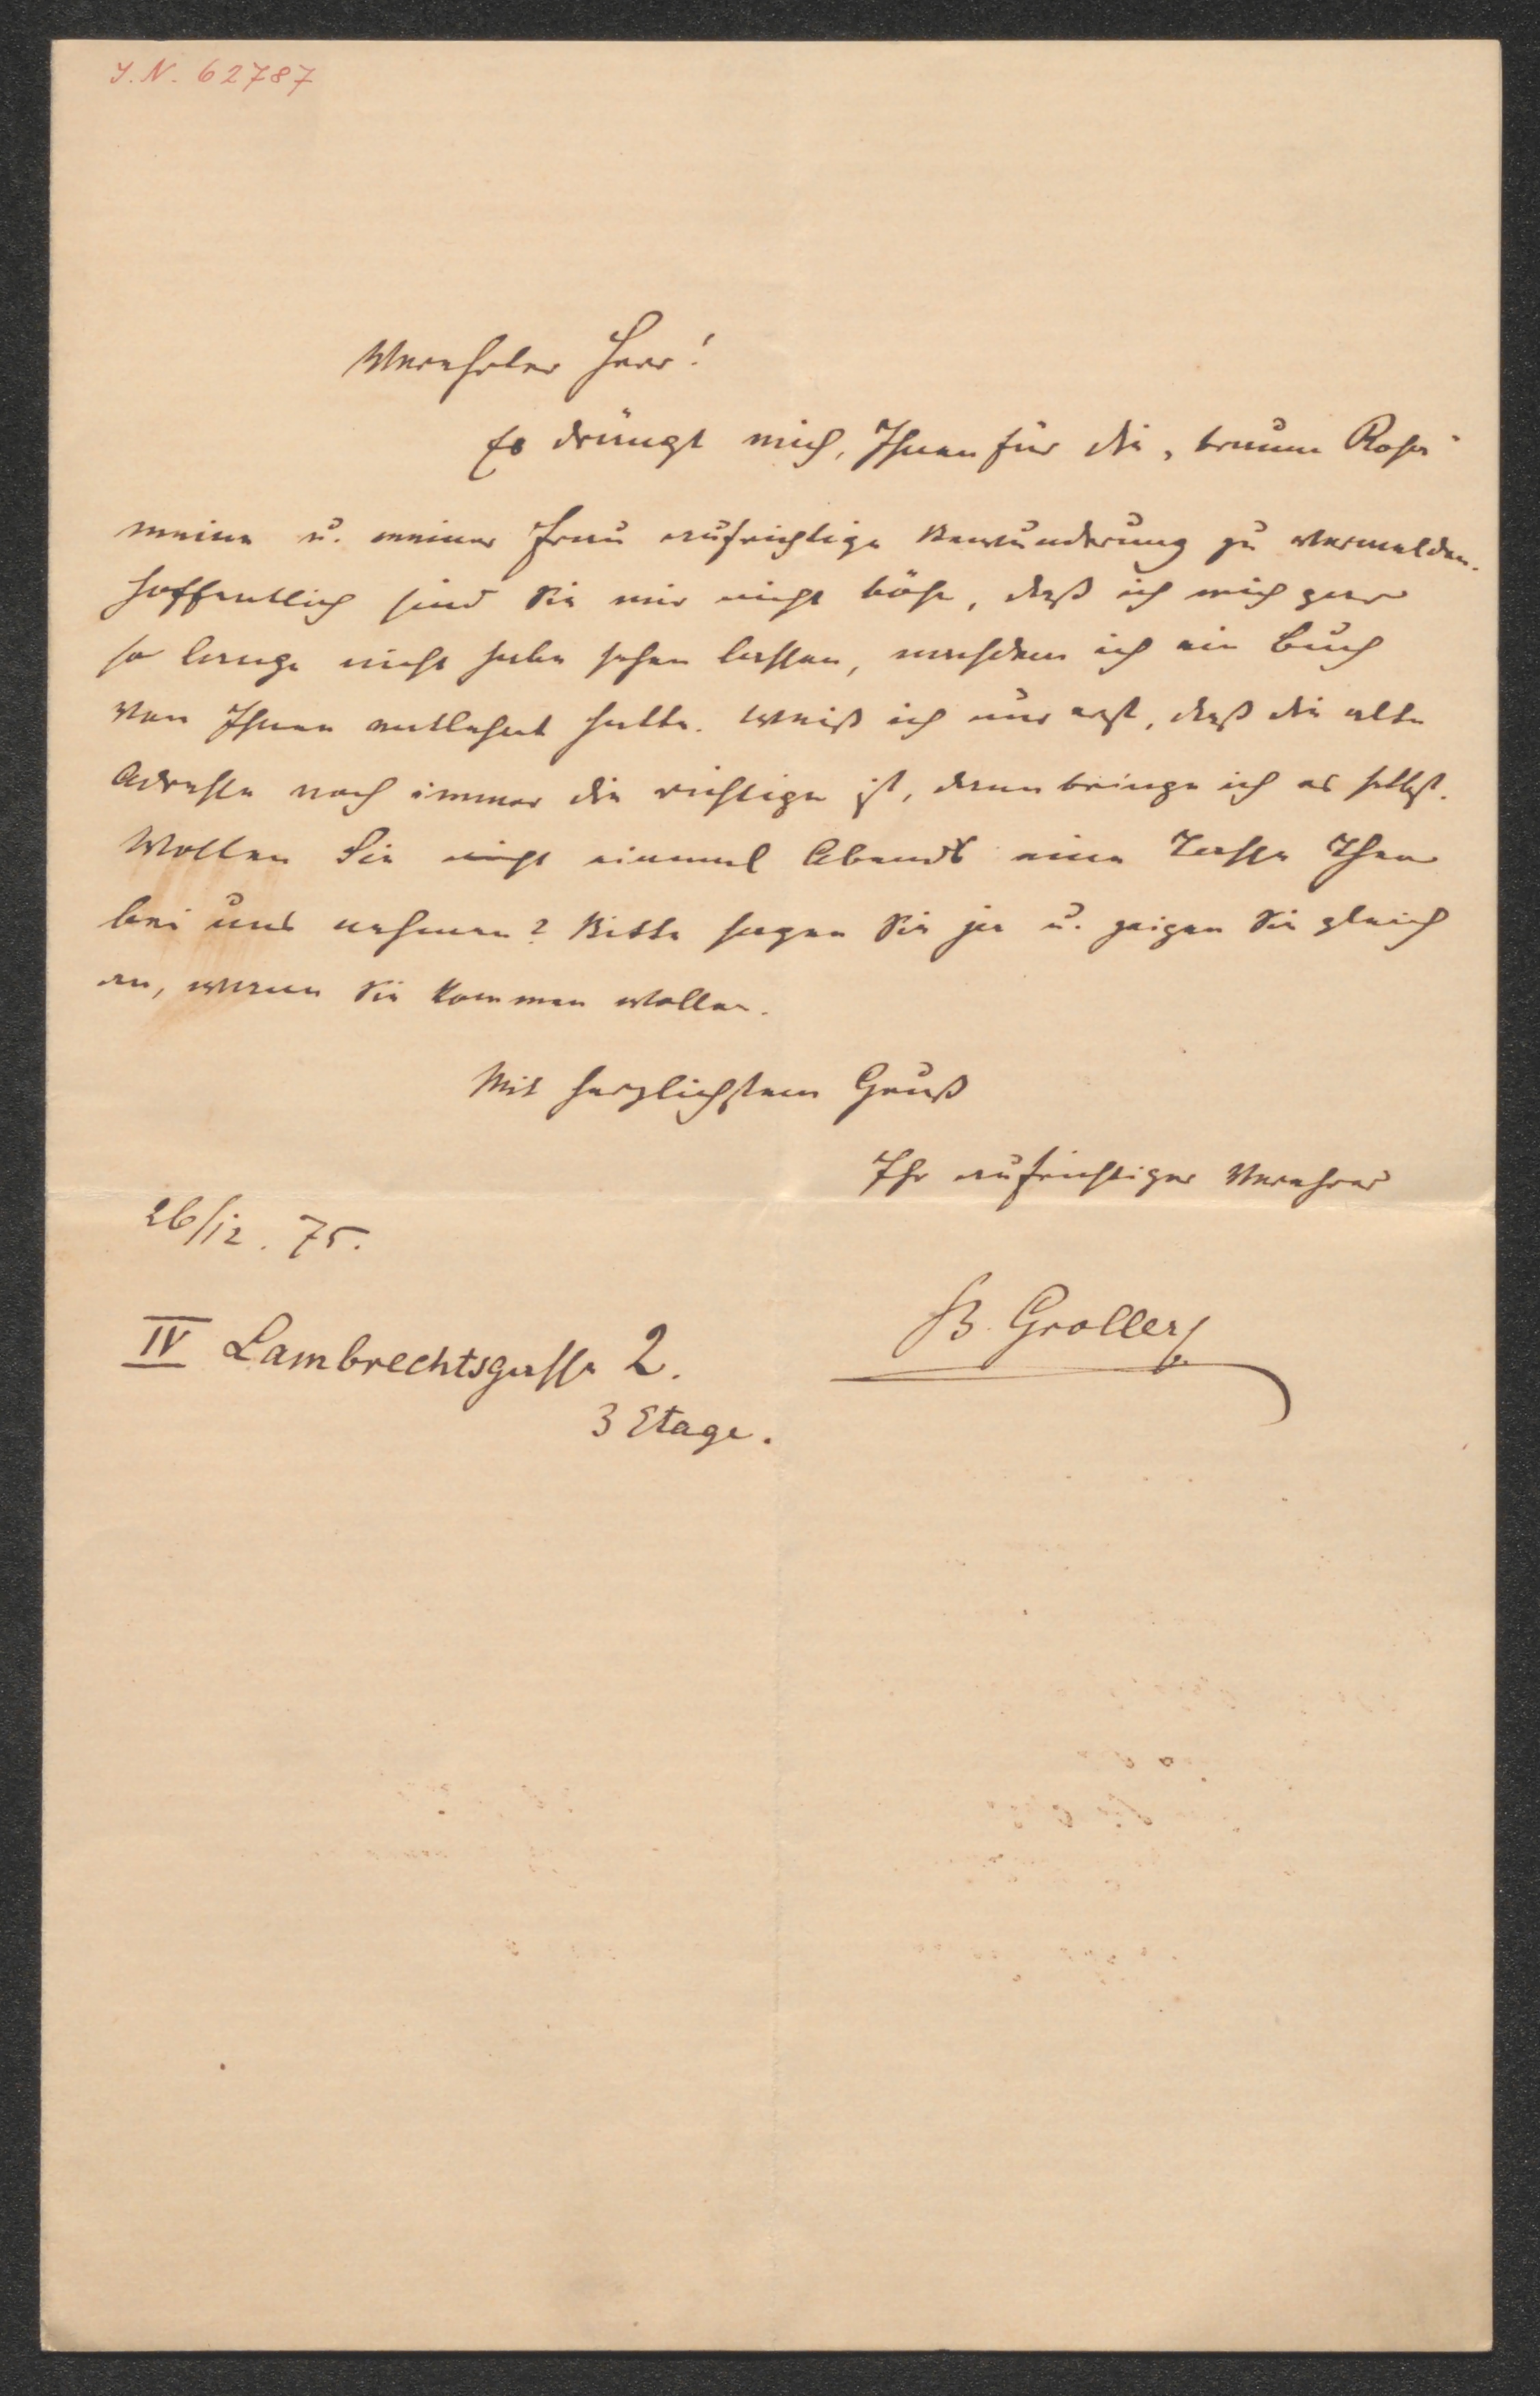 J. N. 62787
Verehrter Herr!
Es drängt mich, Ihnen für die „braune Rosa“
meine u. meiner Frau aufrichtige Bewunderung zu vermelden.
Hoffentlich sind Sie mir nicht böse, daß ich mich gar
so lange nicht habe sehen lassen, nachdem ich ein Buch
von Ihnen entlehnt hatte. Weiß ich nur erst, daß die alte
Adresse noch immer die richtige ist, dann bringe ich es selbst.
Wollen Sie nicht einmal Abends eine Tasse Thee
bei uns nehmen? Bitte sagen Sie ja u. zeigen Sie gleich
an, wann Sie kommen wollen.
Mit herzlichstem Gruß
Ihr aufrichtiger Verehrer
26/12. 75.
B. Groller
IV Lambrechtsgasse 2.
3 Etage.